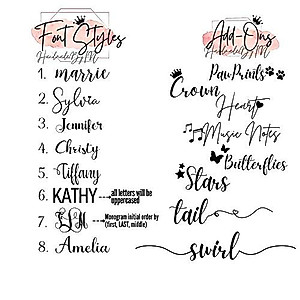 Font Styles
HandmadeByHM
1. marrie
2. Sylvia
3. Jennifer
4. Christy
5. Tiffany
6. KATHY → all letters will be uppercased
7. → Monogram initial order by (first, LAST, middle)
8. Amelia
Add-Ons
HandmadeByHM
PawPrints
Crown
Heart
Music Notes
Butterflies
Stars
tail
swirl